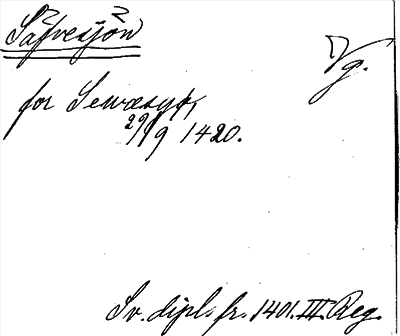 Säfvesjön
Vg.
for Sewæsyø,
29/9 1420.
Sv. dipl. fr. 1401. III. Reg.